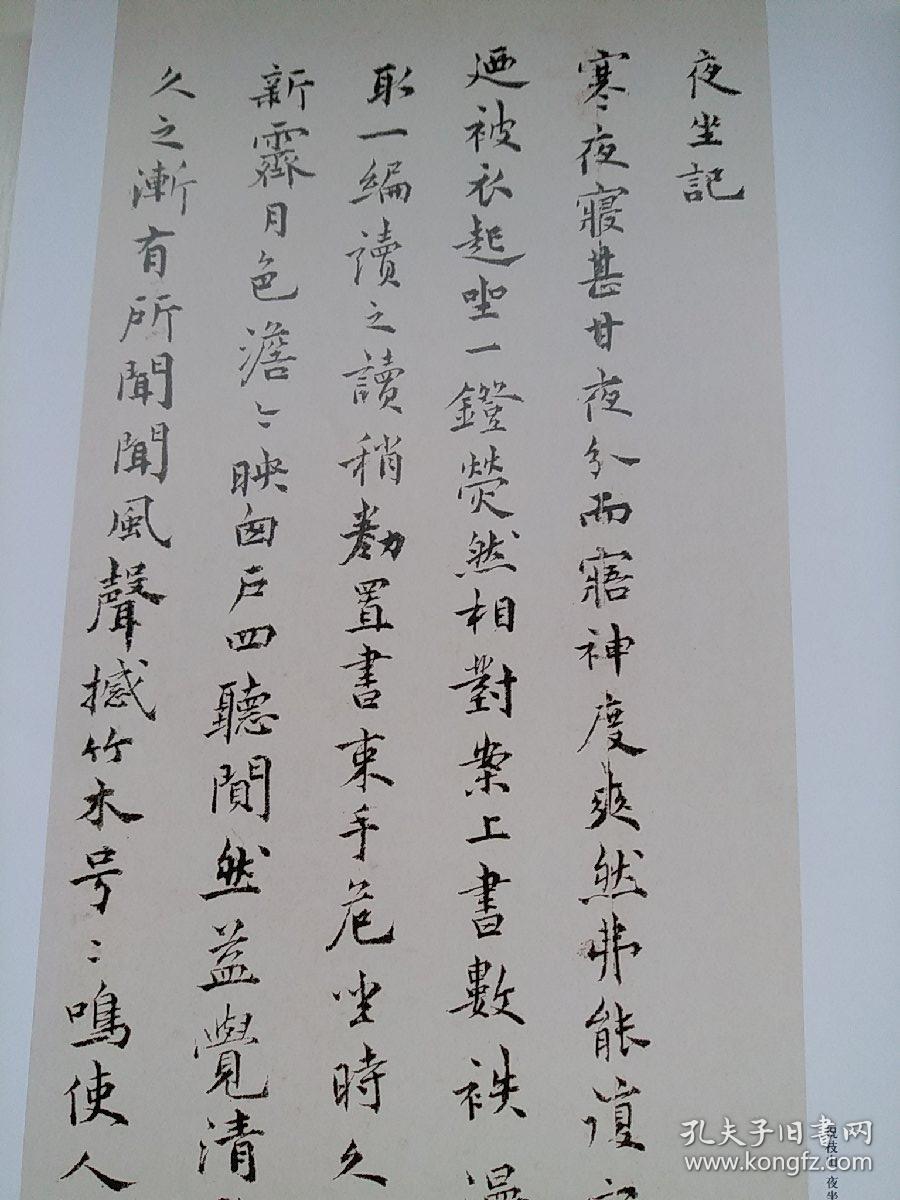 夜坐記
寒夜寢甚甘夜分而寤神度爽然弗能復
廼被衣起坐一鐙熒然相對案上書數袟
取一編讀之讀稍勌置書束手危坐時久
新霽月色澹〻映囪戶四聽閴然益覺清
久之漸有所聞聞風聲撼竹木号〻鳴使人
夜坐
孔夫子旧书网
www.kongfz.com